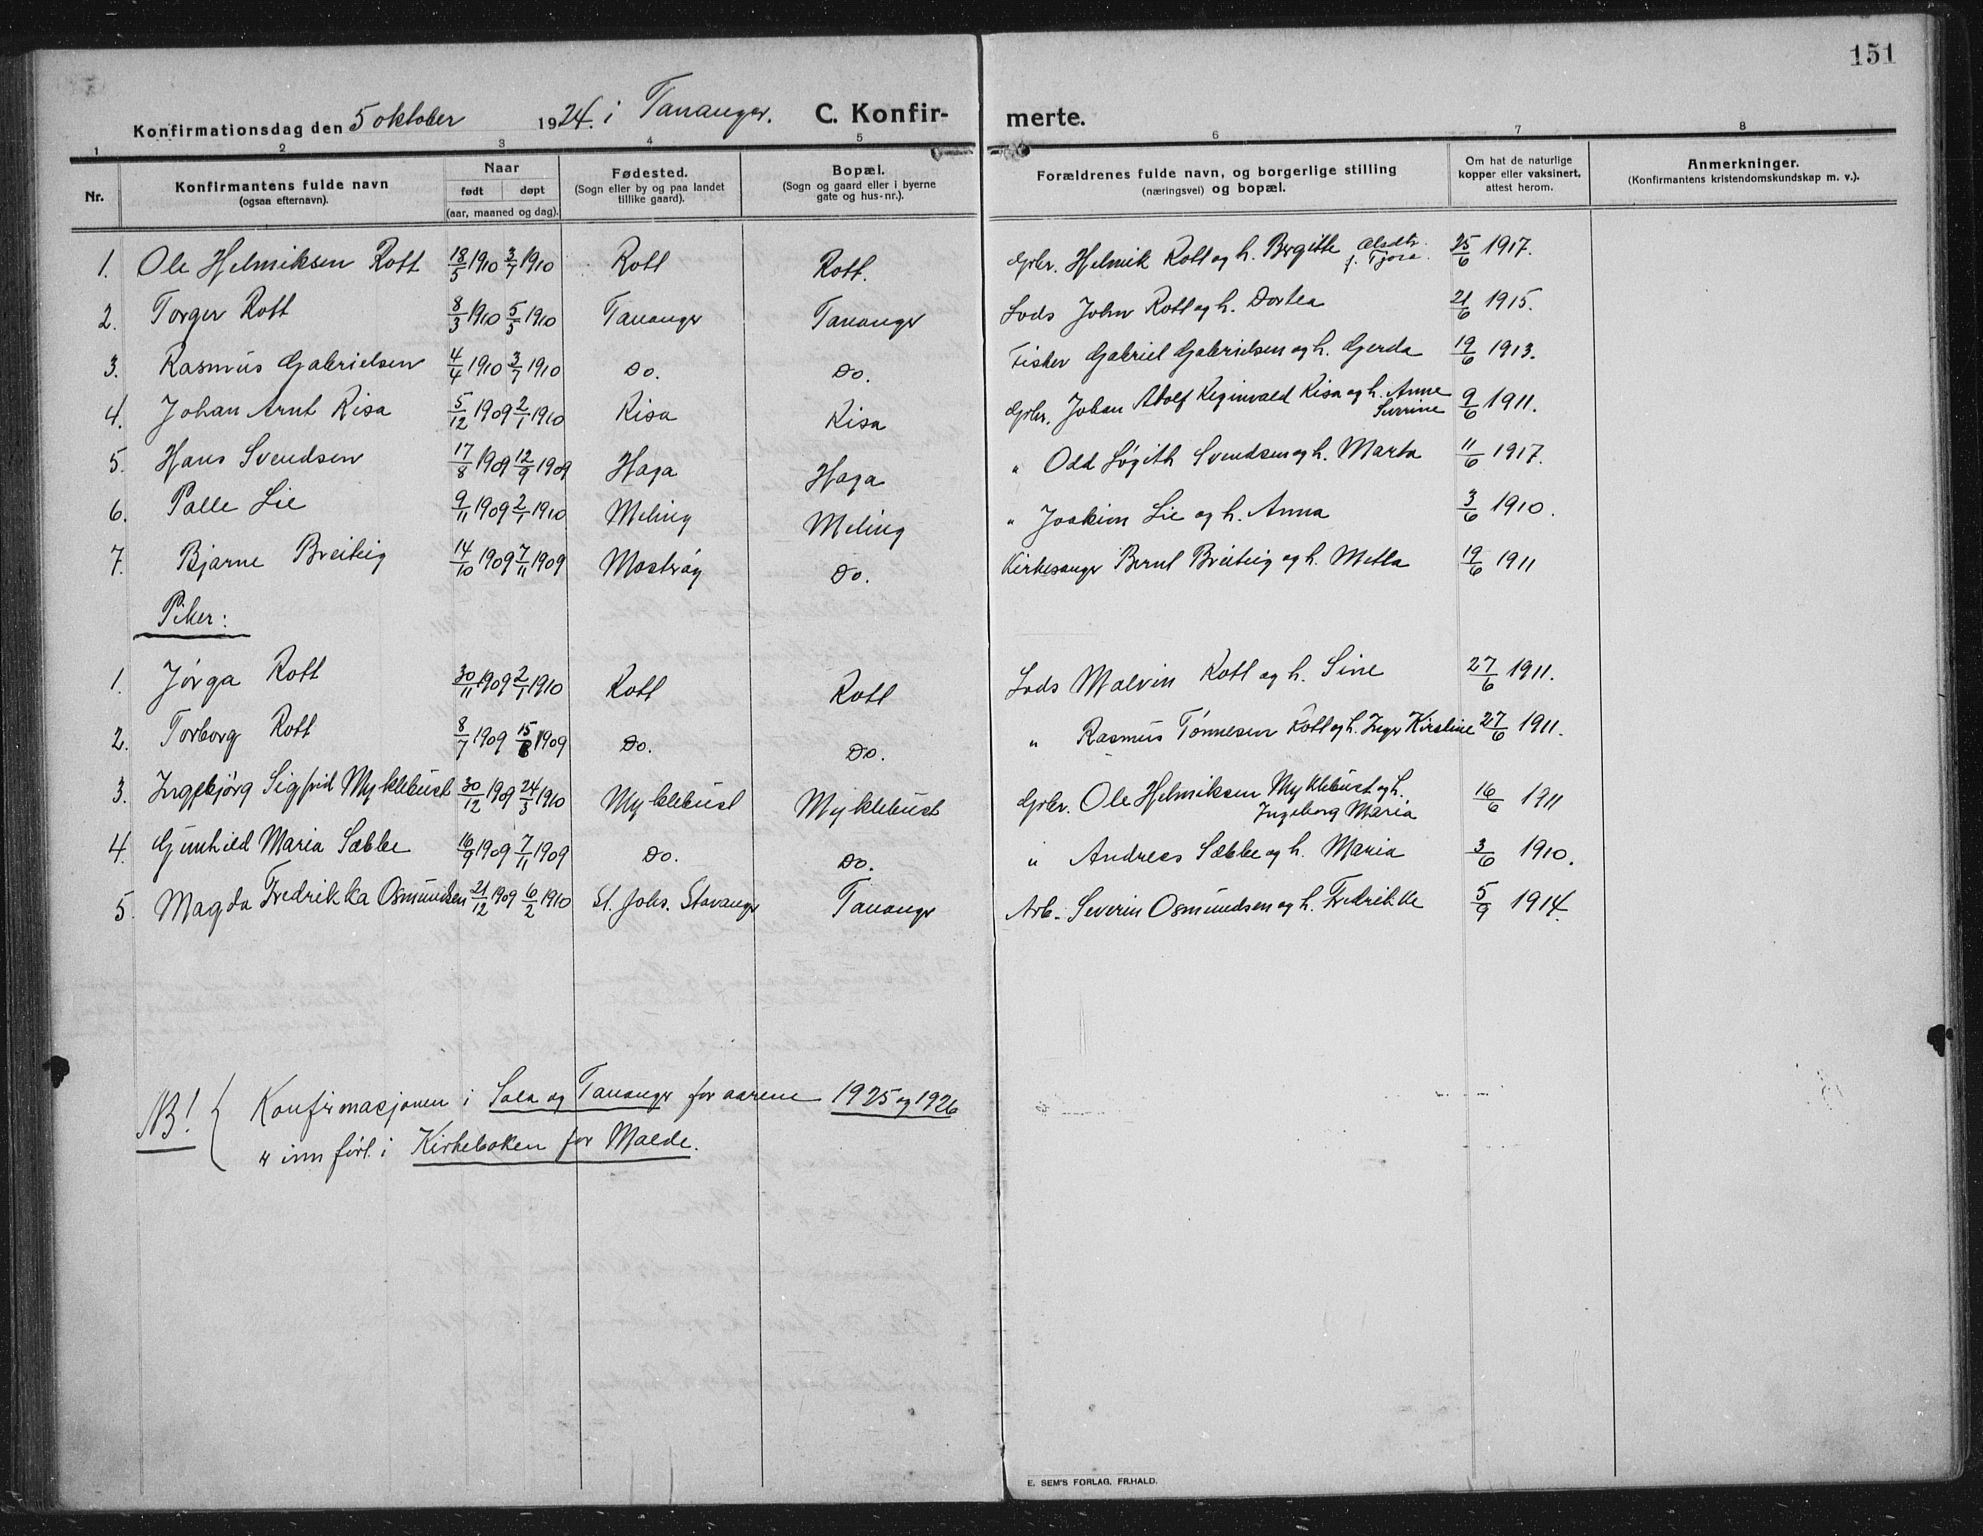 151
Konfirmationsdag den 5 oktober 1924. i Tananger. C. Konfir- merte.
1 2 3 4 5 6 7 8
Nr. Konfirmantens fulde navn (ogsaa efternavn). Naar født døpt (aar, maaned og dag). Fødested. (Sogn eller by og paa landet tillike gaard). Bopæl. (Sogn og gaard eller i byerne gate og hus-nr.). Forældrenes fulde navn, og borgerlige stilling (næringsvei) og bopæl. Om hat de naturlige kopper eller vaksinert, attest herom. Anmerkninger. (Konfirmantens kristendomskundskap m. v.).
1. Ole Helmiksen Rott 18/5 1910 3/7 1910 Rott Rott. Gbr. Helmik Rott og h. Bergitte Olsdtr. f. Tjora. 25/6 1917.
2. Torger Rott 8/3 1910 5/5 1910 Tananger Tananger Lods John Rott og h. Dortea 21/6 1915.
3. Rasmus Gabrielsen 4/4 1910 3/7 1910 Do. Do. Fisker Gabriel Gabrielsen og h. Gerda 19/6 1913.
4. Johan Arnt Risa 5/12 1909 2/1 1910 Risa Risa Gbr. Johan Adolf Reginvald Risa og h. Anne Severine 9/6 1911.
5. Hans Svendsen 17/8 1909 12/9 1909 Haga Haga " Odd Løgith Svendsen og h. Marta 11/6 1917.
6. Palle Lie 9/11 1909 2/1 1910 Meling Meling " Joakim Lie og h. Anna 3/6 1910.
7. Bjarne Breiteig 14/10 1909 7/11 1909 Mosterøy Do. Kirkesanger Bernt Breiteig og h. Metta 19/6 1911
Piker:
1. Jørga Rott 30/11 1909 2/1 1910 Rott Rott Lods Malvin Rott og h. Sine 27/6 1911.
2. Torborg Rott 8/7 1909 15/8 1909 Do. Do. " Rasmus Tønnesen Rott og h. Inger Kirstine 27/6 1911.
3. Ingebjørg Sigfrid Myklebust 30/12 1909 24/3 1910 Myklebust Myklebust Gbr. Ole Helmiksen Myklebust og h. Ingeborg Maria 16/6 1911
4. Gunhild Maria Sæbbe 16/9 1909 7/11 1909 Do. Do. " Andreas Sæbbe og h. Maria 3/6 1910.
5. Magda Fredrikka Osmundsen 21/12 1909 6/2 1910 St. Johs. Stavanger Tananger Arb. Severin Osmundsen og h. Fredrikke 5/9 1914.
NB! Konfirmasjonen i Sola og Tananger for aarene 1925 og 1926
er innført i Kirkeboken for Malde.
E. SEM'S FORLAG. FR.HALD.